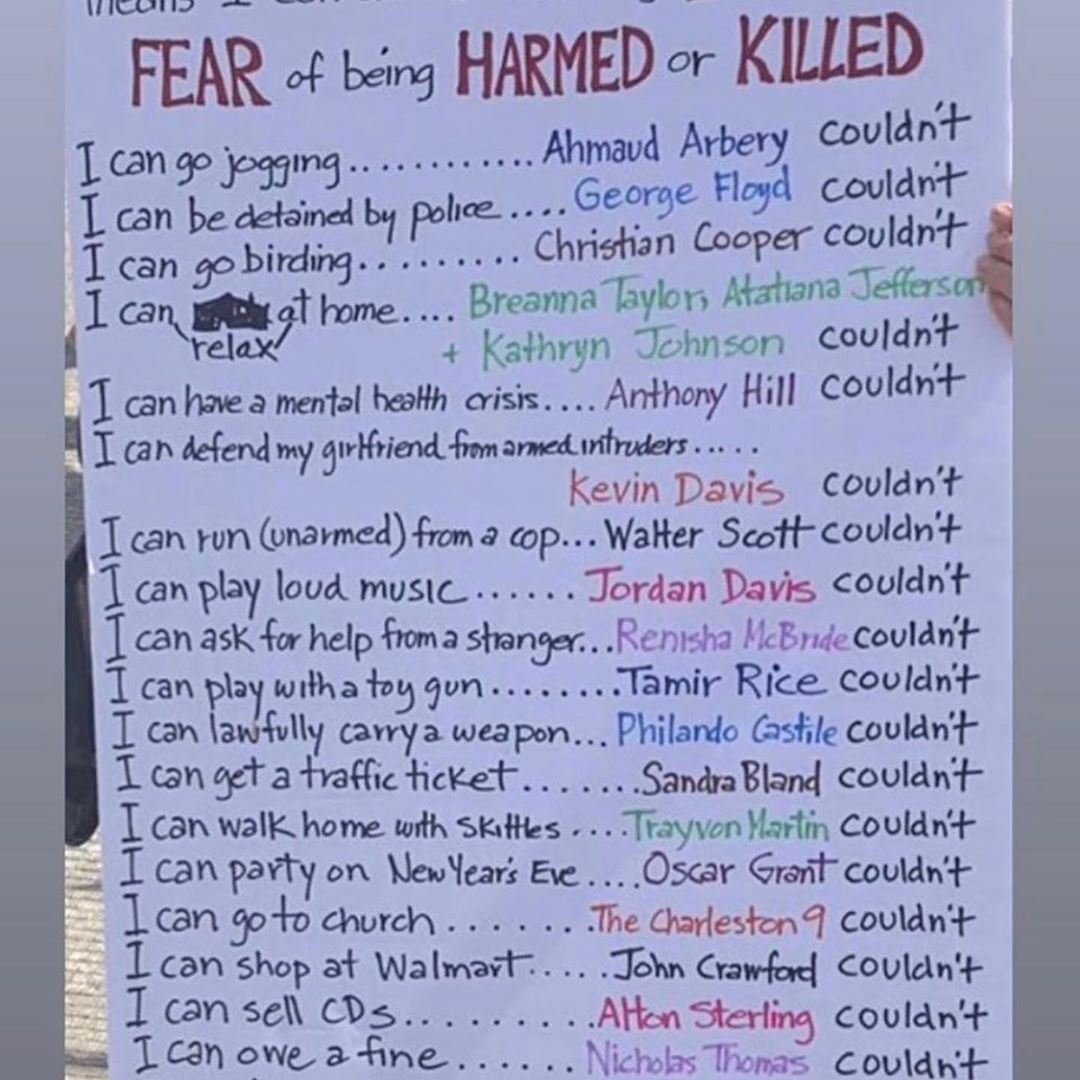 means I can
FEAR of being HARMED or KILLED
I can go jogging............ Ahmaud Arbery couldn't
I can be detained by police.... George Floyd couldn't
I can go birding.......... Christian Cooper couldn't
I can relax at home.... Breanna Taylor, Atatiana Jefferson
+ Kathryn Johnson couldn't
I can have a mental health crisis.... Anthony Hill couldn't
I can defend my girlfriend from armed intruders.....
Kevin Davis couldn't
I can run (unarmed) from a cop... Walter Scott couldn't
I can play loud music...... Jordan Davis couldn't
I can ask for help from a stranger... Renisha McBride couldn't
I can play with a toy gun........ Tamir Rice couldn't
I can lawfully carry a weapon... Philando Castile couldn't
I can get a traffic ticket....... Sandra Bland couldn't
I can walk home with Skittles.... Trayvon Martin couldn't
I can party on New Year's Eve.... Oscar Grant couldn't
I can go to church........ The Charleston 9 couldn't
I can shop at Walmart..... John Crawford couldn't
I can sell CDs.......... Alton Sterling couldn't
I can owe a fine...... Nicholas Thomas couldn't